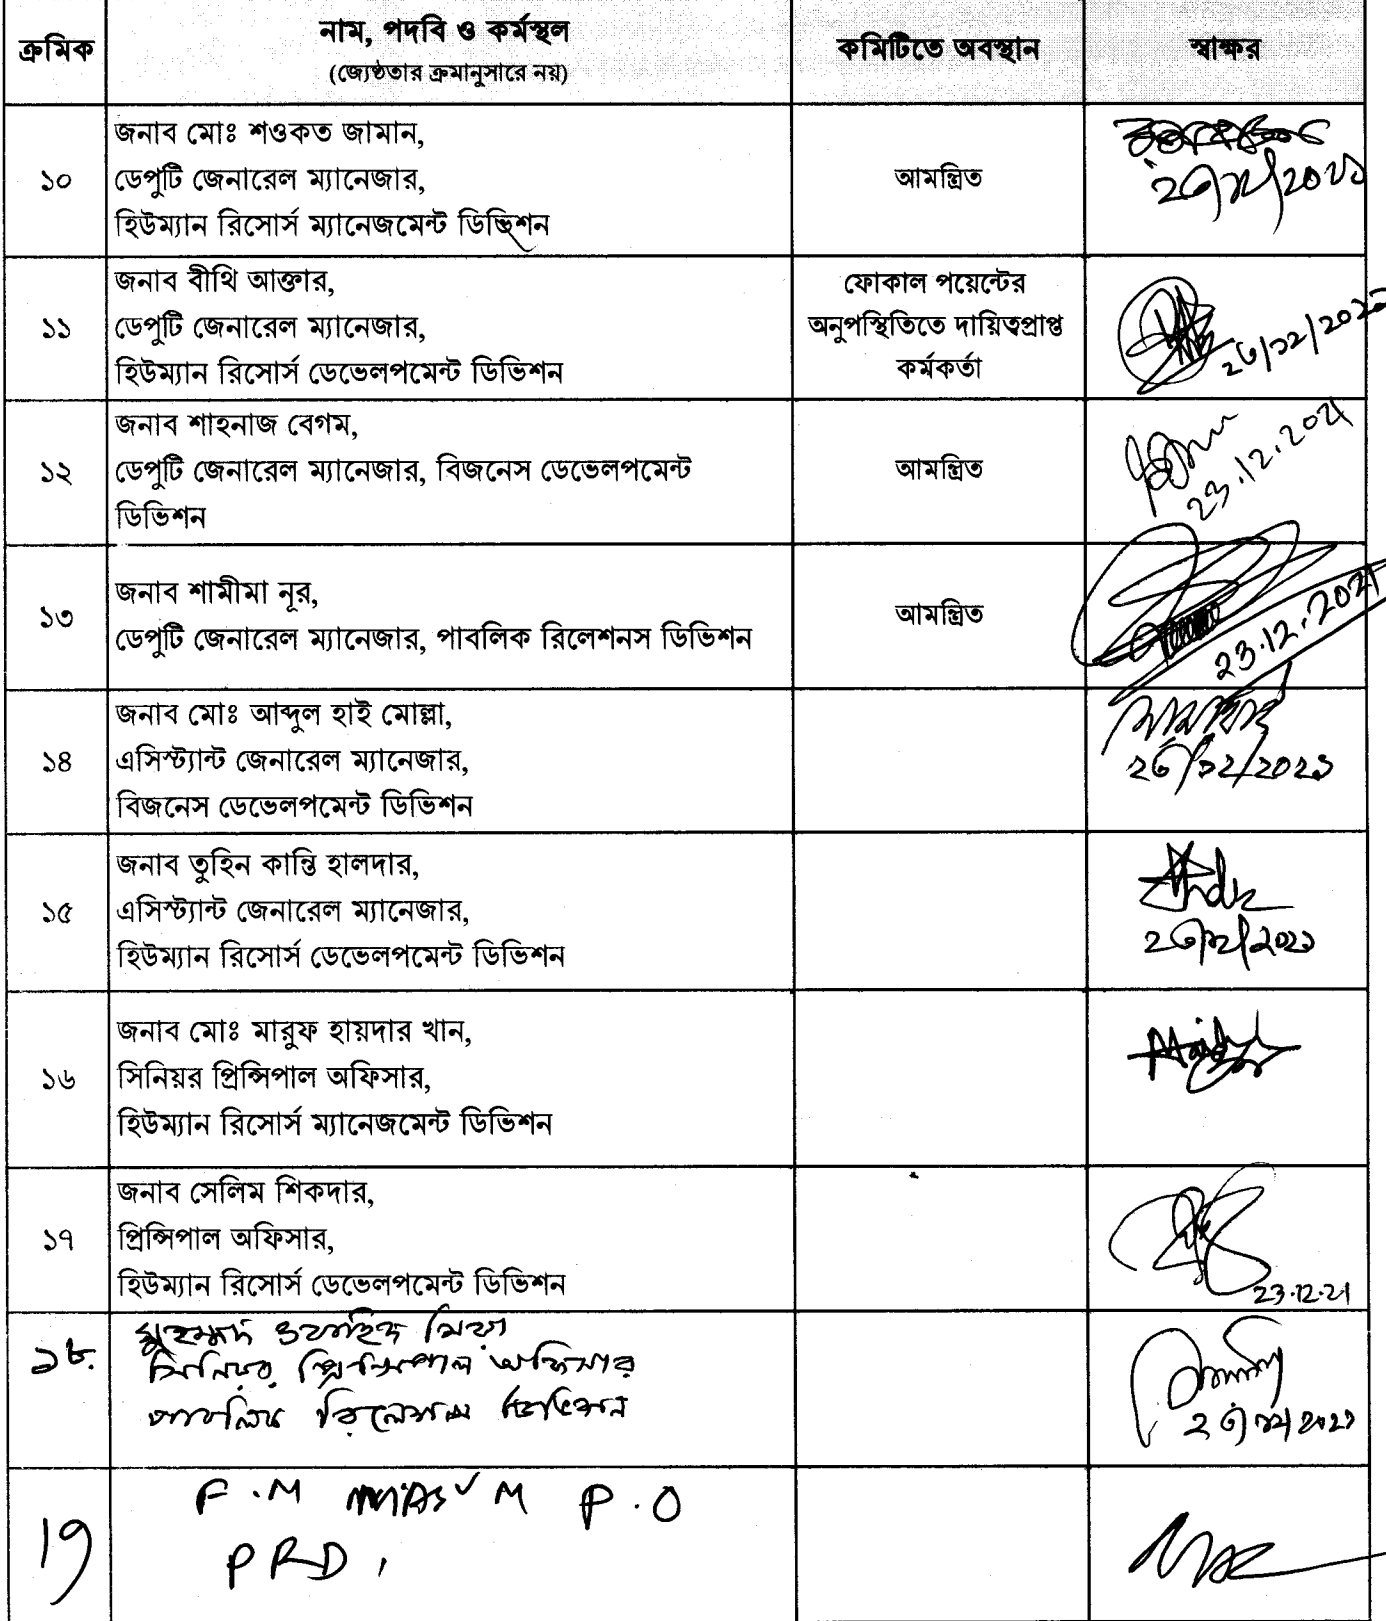 ক্রমিক
নাম, পদবি ও কর্মস্থল
(জ্যেষ্ঠতার ক্রমানুসারে নয়)
কমিটিতে অবস্থান
স্বাক্ষর
১০
জনাব মোঃ শওকত জামান,
ডেপুটি জেনারেল ম্যানেজার,
হিউম্যান রিসোর্স ম্যানেজমেন্ট ডিভিশন
আমন্ত্রিত
২৩/১২/২০২১
১১
জনাব বীথি আক্তার,
ডেপুটি জেনারেল ম্যানেজার,
হিউম্যান রিসোর্স ডেভেলপমেন্ট ডিভিশন
ফোকাল পয়েন্টের
অনুপস্থিতিতে দায়িত্বপ্রাপ্ত
কর্মকর্তা
২৩/১২/২০২১
১২
জনাব শাহনাজ বেগম,
ডেপুটি জেনারেল ম্যানেজার, বিজনেস ডেভেলপমেন্ট
ডিভিশন
আমন্ত্রিত
23.12.2021
১৩
জনাব শামীমা নূর,
ডেপুটি জেনারেল ম্যানেজার, পাবলিক রিলেশনস ডিভিশন
আমন্ত্রিত
23.12.2021
১৪
জনাব মোঃ আব্দুল হাই মোল্লা,
এসিস্ট্যান্ট জেনারেল ম্যানেজার,
বিজনেস ডেভেলপমেন্ট ডিভিশন
২৩/১২/২০২১
১৫
জনাব তুহিন কান্তি হালদার,
এসিস্ট্যান্ট জেনারেল ম্যানেজার,
হিউম্যান রিসোর্স ডেভেলপমেন্ট ডিভিশন
২৩/১২/২০২১
১৬
জনাব মোঃ মারুফ হায়দার খান,
সিনিয়র প্রিন্সিপাল অফিসার,
হিউম্যান রিসোর্স ম্যানেজমেন্ট ডিভিশন
১৭
জনাব সেলিম শিকদার,
প্রিন্সিপাল অফিসার,
হিউম্যান রিসোর্স ডেভেলপমেন্ট ডিভিশন
23.12.21
১৮.
মুহম্মদ ওয়াহিদ মিয়া
সিনিয়র প্রিন্সিপাল অফিসার
পাবলিক রিলেশন্স ডিভিশন
২৩/১২/২০২১
19
F.M MASUM P.O
PRD,